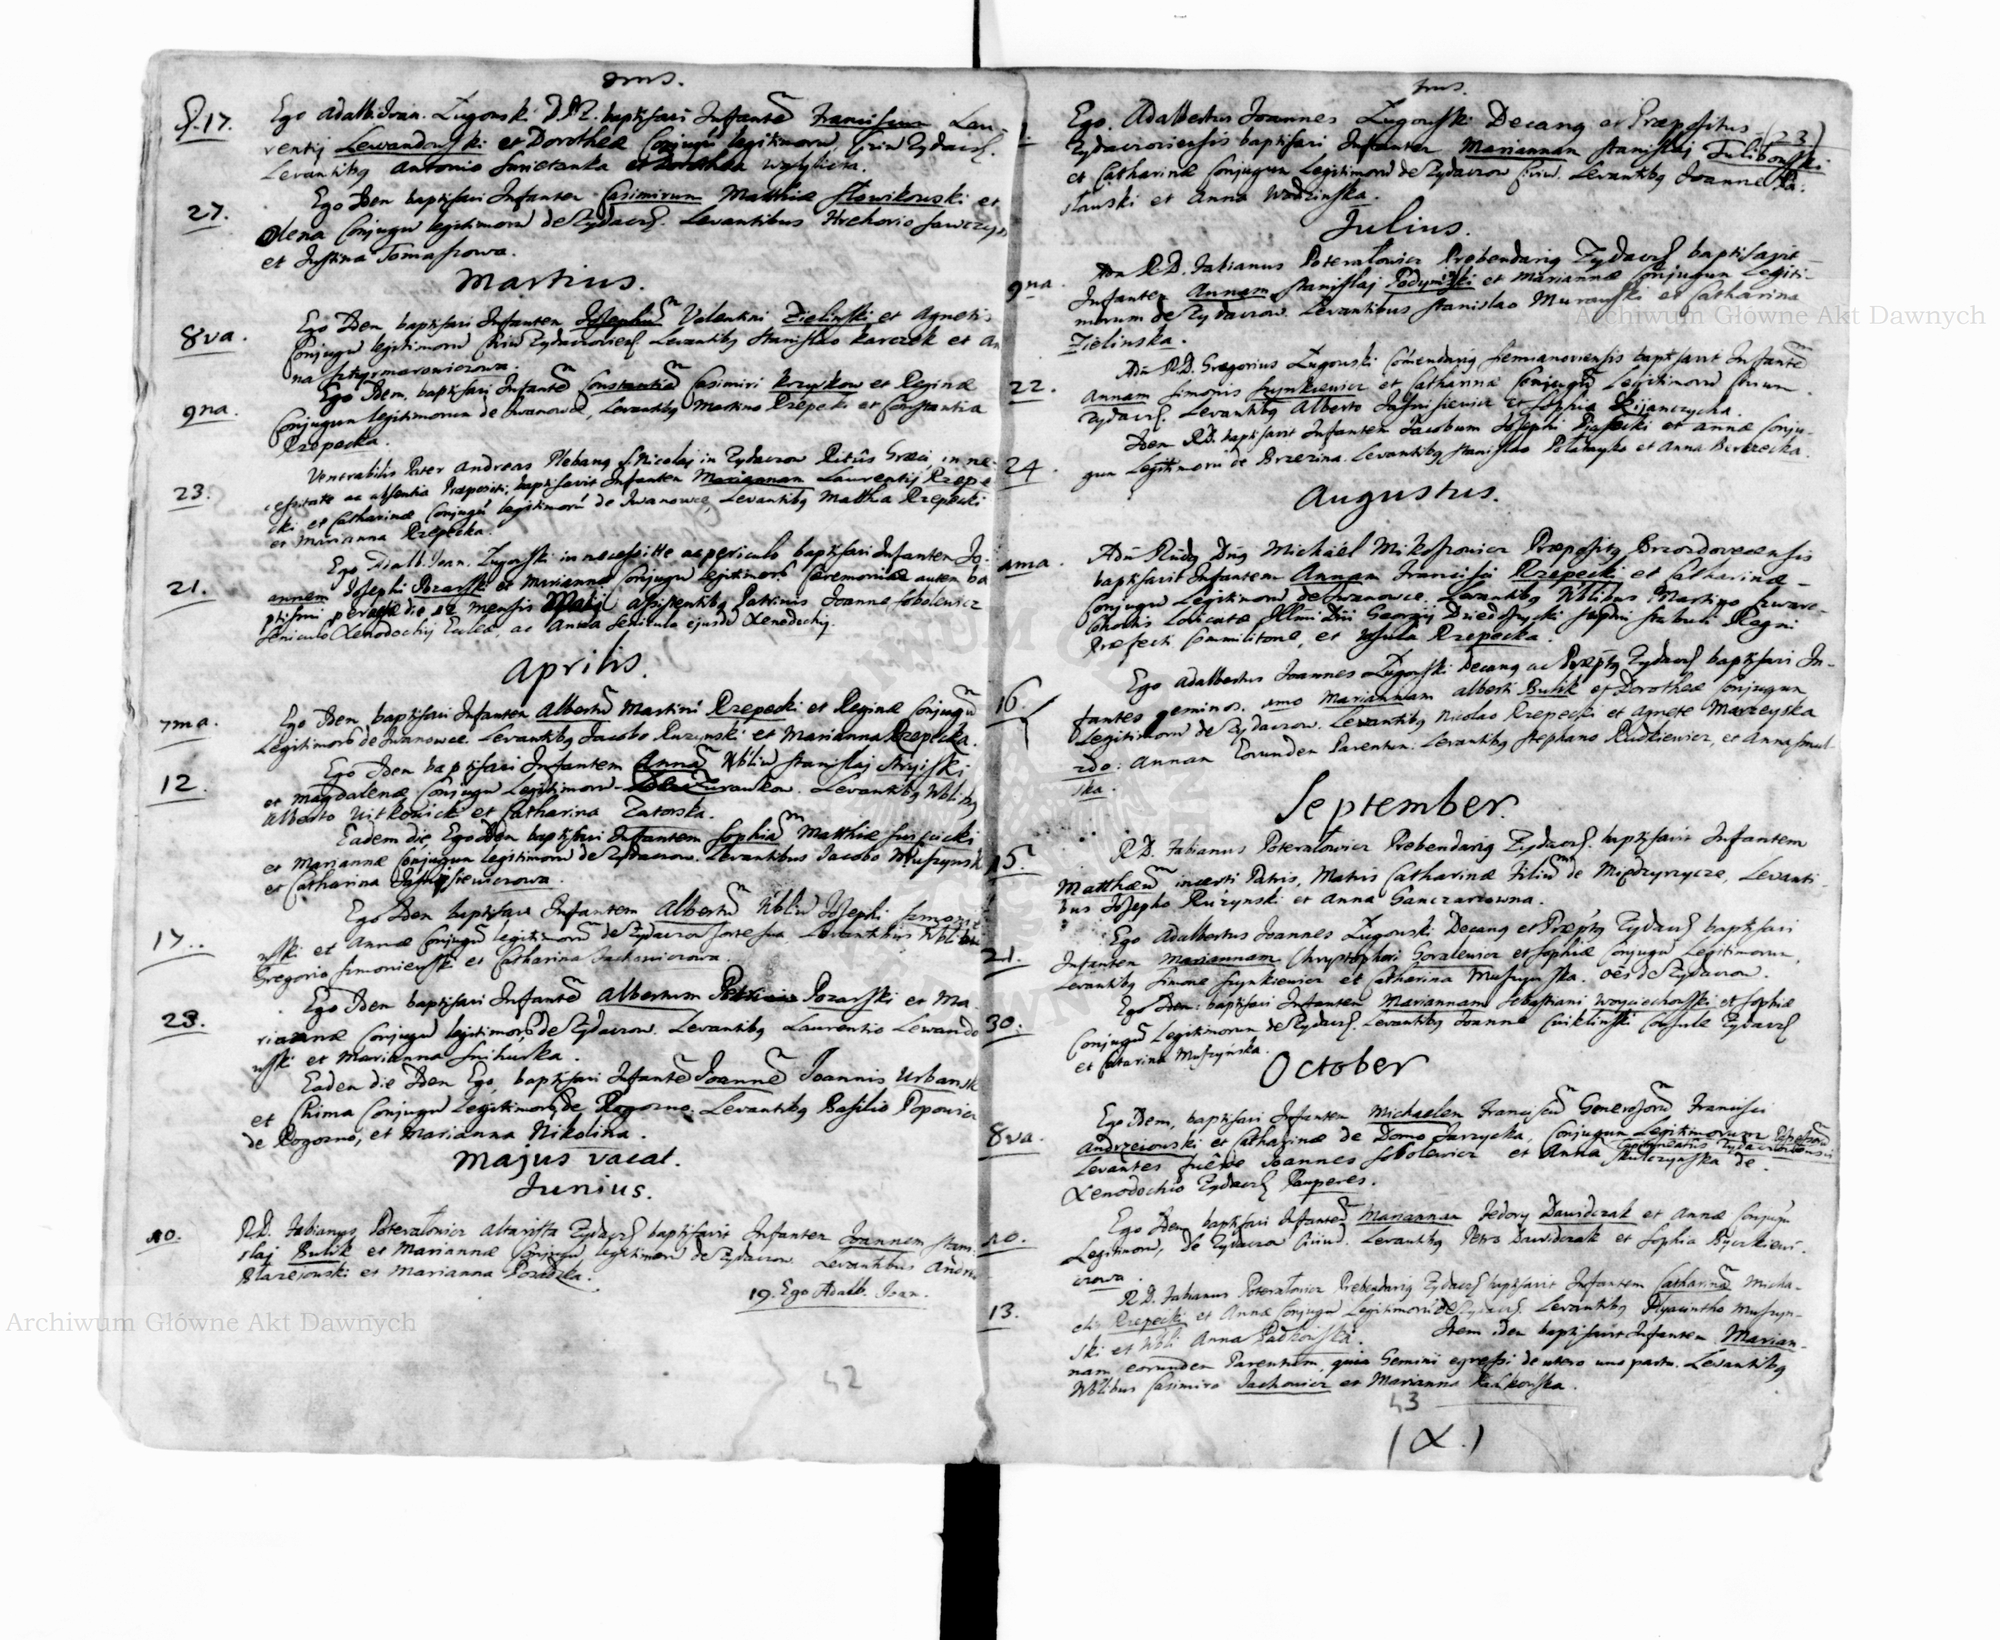 D. 17.
Ego Adalb. Joan. Zugowski D. P. Z. baptisavi Infantē Franciscum Lau-
rentij Lewandowski et Dorotheæ Conjugū legitimorū, Civiū Zydacz.
Levantibq Antonio Smietanka et Dorothea
27.
Ego Idem baptisavi Infantem Casimirum Matthiæ Słowikowski et
Olena Conjugū legitimorū de Zydacz. Levantibus Hrehorio Sawczyn
et Justina Tomaszowa.
Martius.
8va.
Ego Idem baptisavi Infantem Josephū Valentini Zielinski et Agnetis
Conjugū legitimorū Civiū Zydacoviens. Levantibq Stanislao Karczek et An
na
9na.
Ego Idem, baptisavi Infantē Constantiā Casimiri Krzywkow et Reginæ
Conjugum legitimorum de Iwanowce, Levantibq Martino Rzepecki et Constantia
Rzepecka.
23.
Venerabilis Pater Andreas Plebanq S. Nicolaj in Zydaczow Ritûs Græci, in ne-
cessitate ac absentia Præpositi, baptisavit Infantem Mariannam Laurentij Rzepe
cki et Catharinæ Conjugū legitimorū de Iwanowce, Levantibq Matthia Rzepecki
et Marianna Rzepecka.
21.
Ego Adalb. Joan. Zugowski in necessitate ac periculo baptisavi Infantem Jo-
annem Josephi Pozarski et Mariannæ Conjugū legitimorū Ceremoniæ autem ba
ptismi peractæ die 22 mensis Maij assistentibq Patrinis Joanne Sobolewicz
Seniculo Xenodochij Eccleæ, ac Anna Senicula ejusdē Xenodochij.
Aprilis.
7ma.
Ego Idem baptisavi Infantem Albertū Martini Rzepecki et Reginæ Conjugū
Legitimorū de Iwanowce. Levantibq Jacobo Ruzynski et Marianna Rzepecka.
12.
Ego Idem baptisavi Infantem Annā Nbliū Stanislaj Stryiski
et Magdalenæ Conjugū legitimorū Zurawkow. Levantibq Nblibq
Alberto Witkowicki et Catharina Zatorska.
Eadem die, Ego Idem baptisavi Infantem Sophiā Matthiæ Swięcicki
et Mariannæ Conjugum legitimorū de Zydaczow. Levantibus Jacobo Muszynski
et Catharina
17.
Ego Idem baptisavi Infantem Albertū Nbliū Josephi Szmonie
wski et Annæ Conjugū legitimorū de Zydaczow Levantibus Nblibus
Gregorio Szmoniewski et Catharina Jachowiczowa.
23.
Ego Idem baptisavi Infantē Albertum Pozarski et Ma
riannæ Conjugū legitimorū de Zydaczow. Levantibq Laurentio Lewando
wski et Marianna Snihurka.
Eadem die Idem Ego, baptisavi Infantē Joannē Joannis Urbansk
et Chima Conjugū legitimorū de Rogozno. Levantibq Basilio Popowicz
de Rogozno, et Marianna Nikolina.
Majus vacat.
Junius.
10.
R.D. Fabianus Poteralowicz Altarista Zydacz baptisavit Infantem Joannem Stani-
slaj Bulik et Mariannæ Conjugū legitimorū de Zydaczow. Levantibus Andrea
Błazejowski et Marianna
19. Ego Adalb. Joan.
42
Ego. Adalbertus Joannes Zugowski Decanq et Præpositus (23)
Zydaczoviensis baptisavi Infantem Mariannam Stanislaj Tulibowski
et Catharinæ Conjugum legitimorū de Zydaczow Civiū. Levantibq Joanne Ra-
sławski et Anna Wodzinska.
Julius.
9na.
Adm R.D. Fabianus Poteralowicz Prebendariq Zydacz baptisavit
Infantem Annam Stanislaj Podyninski et Mariannæ Conjugum Legiti-
morum de Zydaczow. Levantibus Stanislao Murawski et Catharina
Zielinska.
22.
Adm R.D. Gregorius Zugowski Comendariq Siemianoviensis baptisavit Infantē
Annam Simonis Szynkiewicz et Catharinæ Conjugū Legitimorū Civium
Zydacz. Levantibq Alberto et Sophia Kijanczycha.
24.
Idem R.D. baptisavit Infantem Jacobum Josephi Piasecki et Annæ Conju-
gum Legitimorū de Brzezina. Levantibq Stanislao et Anna
Augustus.
1ma.
Adm Rndq Dnq Michael Mikoszowicz Præpositq Brzozdovecensis
baptisavit Infantem Annam Francisci Rzepecki et Catharinæ
Conjugū Legitimorū de Iwanowce. Levantibq Nblibus Martino Szware-
Cohortis Loricatæ Illmi Dni Georgij Dzieduszycki Supmi Stabuli Regni
Præfecti Commilitone, et Ursula Rzepecka.
16.
Ego Adalbertus Joannes Zugowski Decanq ac Præptq Zydacz baptisavi In-
fantes geminos. 1mo Mariannam Alberti Bulik et Dorotheæ Conjugum
Legitimorū de Zydaczow. Levantibq Nicolao Rzepecki et Agnete Marzeyska
2do: Annam Eorundem Parentum. Levantibq Stephano Rudkiewicz, et Anna Smul-
ska.
September.
15.
R.D. Fabianus Poteralowicz Prebendariq Zydacz. baptisavit Infantem
Matthæū incerti Patris, Matris Catharinæ Filiū de Międzyrzycze, Levanti-
bus Josepho Ruzynski et Anna Ganczarzowna.
21.
Ego Adalbertus Joannes Zugowski Decanq et Præptq Zydacz baptisavi
Infantem Mariannam Chryptophori Goralewicz et Sophiæ Conjugū Legitimorum,
Levantibq Simone Szynkiewicz et Catharina Muszynska. oēs de Zydaczow.
30.
Ego Idem: baptisavi Infantem Mariannam Sebastiani Woyciechowski et Sophiæ
Conjugū Legitimorum de Zydacz. Levantibq Joanne Cwiklinski Consule Zydacz
et Catarina Muszynska.
October
8va.
Ego Idem, baptisavi Infantem Michaelem Franciscū Generosorū Francisci
Andrzeiowski et Catharinæ de Domo Jarzycka, Conjugum Legitimorum
Levantes fuêre Joannes Sobolewicz et Anna Skulczynska de
Xenodochio Zydacz Pauperes.
10.
Ego Idem baptisavi Infantē Mariannam Fedory Dawidczak et Annæ Conjugū
Legitimorū, de Zydaczow Civiū. Levantibq Petro Dawidczak et Sophia Byczkiewi-
czowa.
13.
R.D. Fabianus Poteralowicz Prebendariq Zydacz baptisavit Infantem Catharinā Micha-
elis Rzepecki et Annæ Conjugū Legitimorū de Zydacz. Levantibq Hyacintho Muszyn-
ski et Nbli Anna Radkowska. Item idem baptisavit Infantem Marian-
nam, eorundem Parentum, quia Gemini egressi de utero uno partu. Levantibq
Nblibus Casimiro Jachowicz et Marianna Radkowska.
43
(X.)
Archiwum Główne Akt Dawnych
Archiwum Główne Akt Dawnych